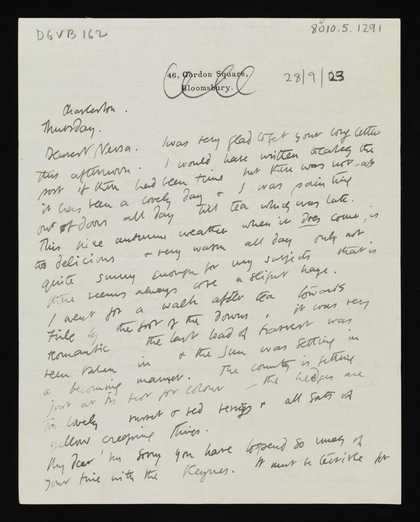 DGVB 162
8010.5.1291
46, Gordon Square,
Bloomsbury.
28/9/23
Charleston.
Thursday.
Dearest Nessa. I was very glad to get your long letter
this afternoon. I would have written to catch the
post if there had been time but there was not - as
it has been a lovely day & I was painting
out of doors all day till tea which was late.
This nice autumn weather when it does come, is
so delicious & very warm all day only not
quite sunny enough for my subjects that is
there seems always a slight haze.
I went for a walk after tea towards
Firle by the foot of the Downs, it was very
romantic the last load of harvest was
been taken in & the Sun was setting in
a becoming manner. The country is getting
just at its best for colour - the hedges are
so lovely & red & all sorts of
yellow creeping things.
My dear I'm sorry you have to spend so much of
your time with the Keynes. It must be terrible for